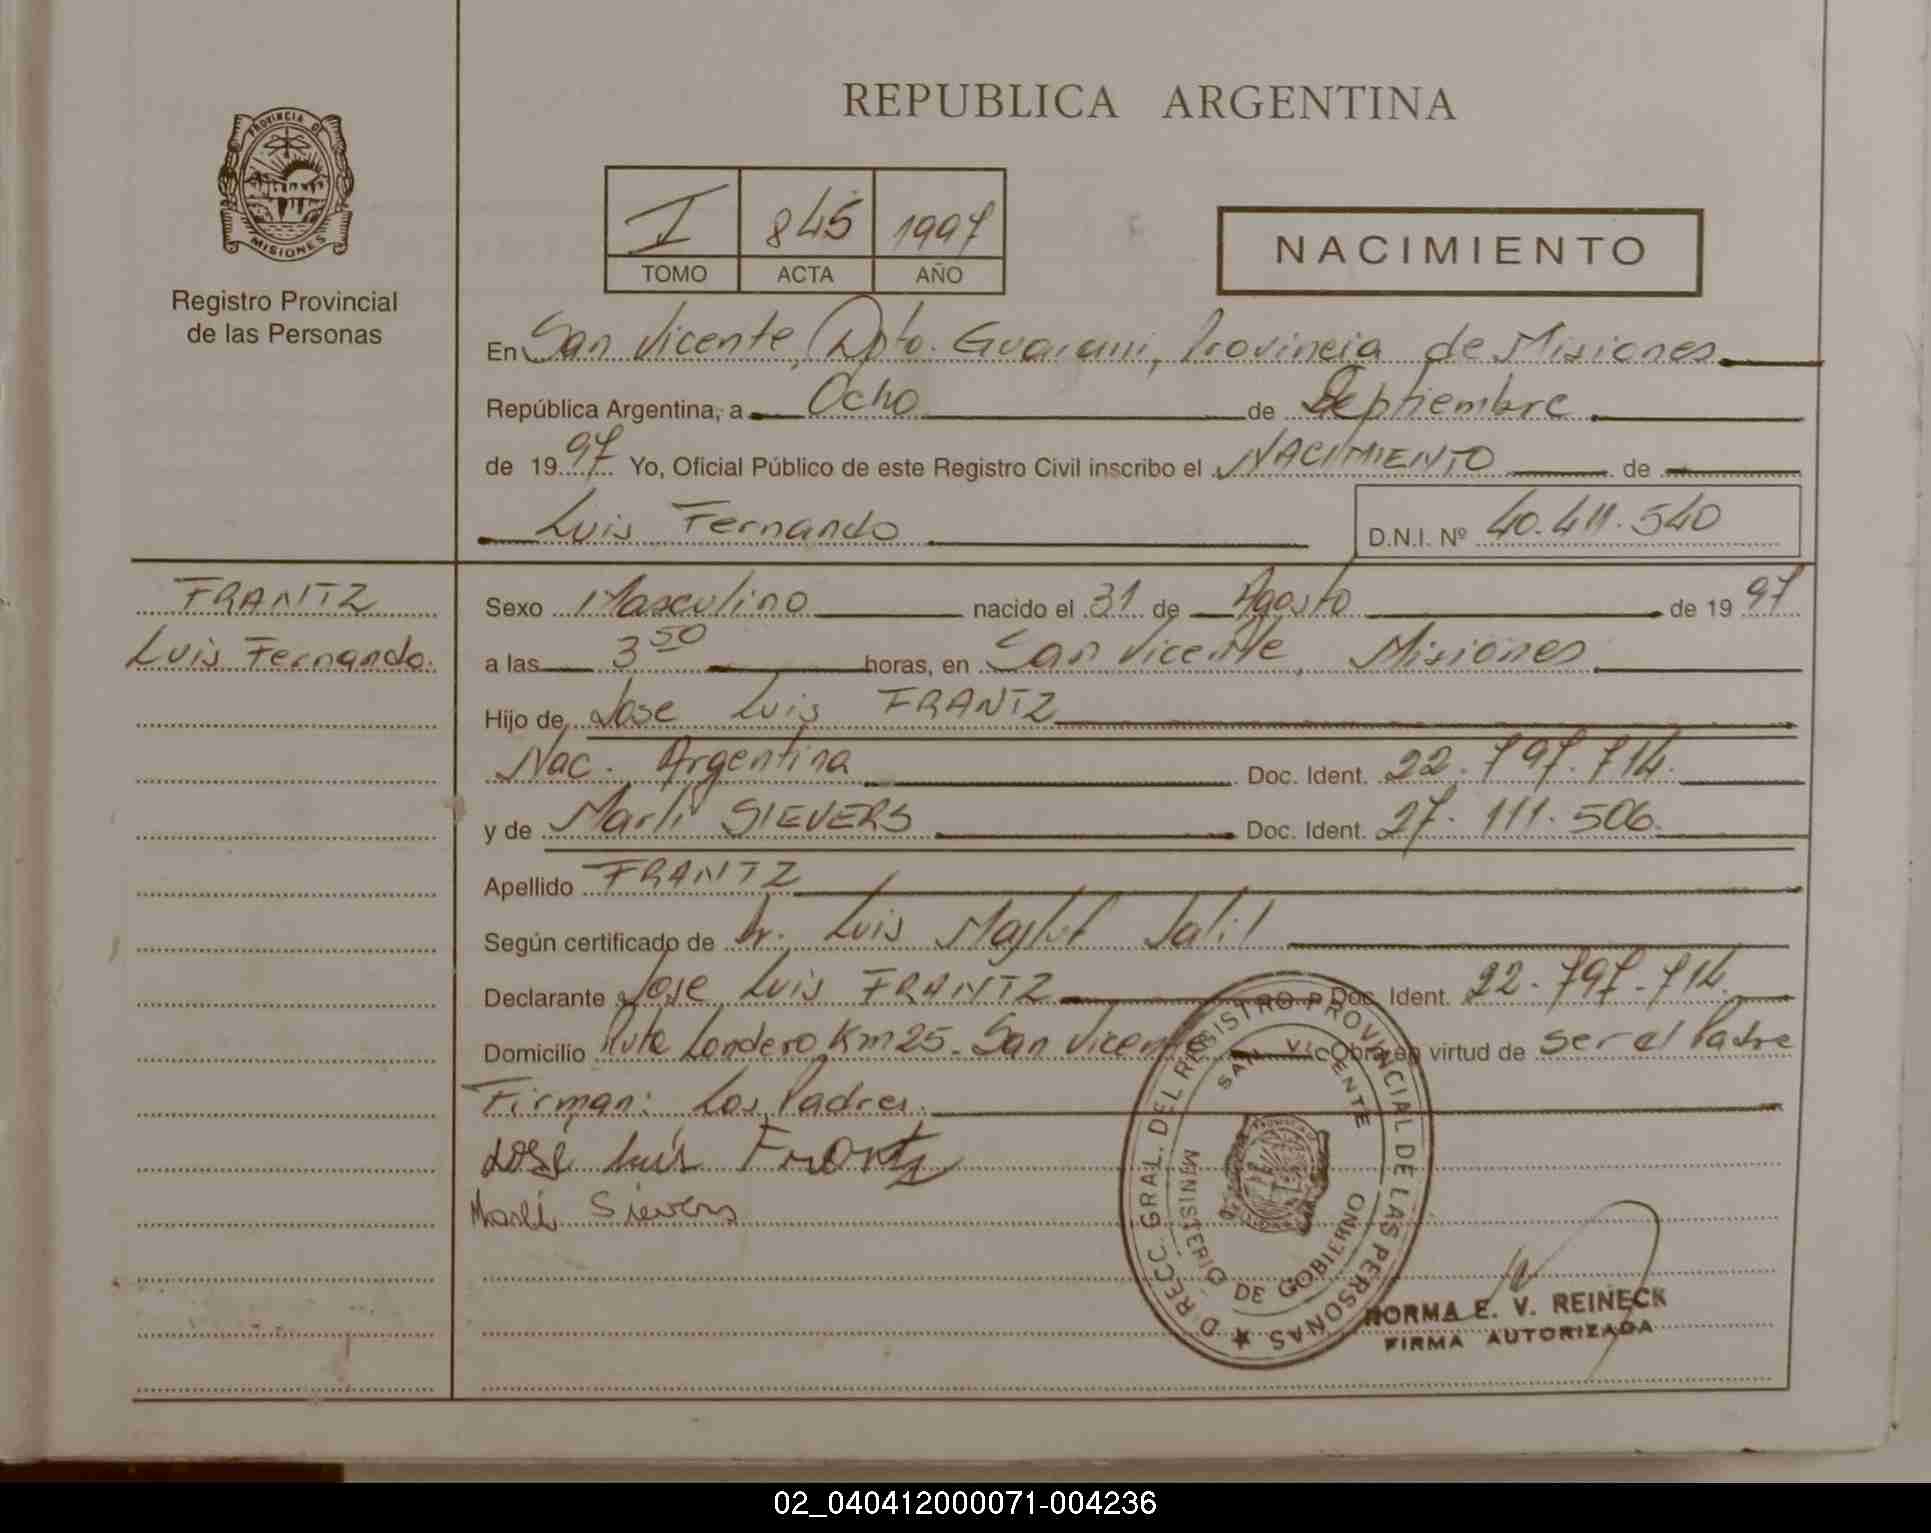 REPUBLICA ARGENTINA
PROVINCIA DE
MISIONES
Registro Provincial
de las Personas
I 845 1997
TOMO ACTA AÑO
NACIMIENTO
En San Vicente, Dpto. Guarani, Provincia de Misiones
República Argentina, a Ocho de Septiembre
de 19 97 Yo, Oficial Público de este Registro Civil inscribo el NACIMIENTO de
Luis Fernando D.N.I. Nº 40.411.540
FRANTZ
Luis Fernando.
Sexo Masculino nacido el 31 de Agosto de 19 97
a las 3 50 horas, en San Vicente, Misiones
Hijo de Jose Luis FRANTZ
Nac. Argentina Doc. Ident. 22.797.714.
y de Marli SIEVERS Doc. Ident. 27.111.506.
Apellido FRANTZ
Según certificado de Dr. Luis Jalil
Declarante Jose Luis FRANTZ Doc. Ident. 22.797.714.
Domicilio Ruta Londero Km 25. San Vicente Obra en virtud de ser el Padre
Firman: Los Padres.
José Luis Frantz
Marli Sievers
DIRECC. GRAL. DEL REGISTRO PROVINCIAL DE LAS PERSONAS
SAN VICENTE
MINISTERIO DE GOBIERNO
NORMA E. V. REINECK
FIRMA AUTORIZADA
02_040412000071-004236